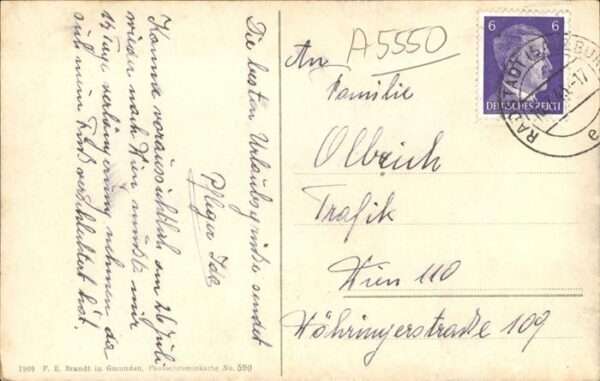 Die besten Urlaubsgrüße sendet
Pfleger
Komme voraussichtlich am 26 Juli
wieder nach Wien mir
14 Tage verlängerung nehmen da
sich mein Fuß verschlechtert hat.
A5550
An
Familie
Olbrich
Trafik
Wien 110
Währingerstraße 109
6 6
DEUTSCHES REICH
RADSTADT (SALZBURG)
1909 F. E. Brandt in Gmunden, Photochromiekarte No. 590